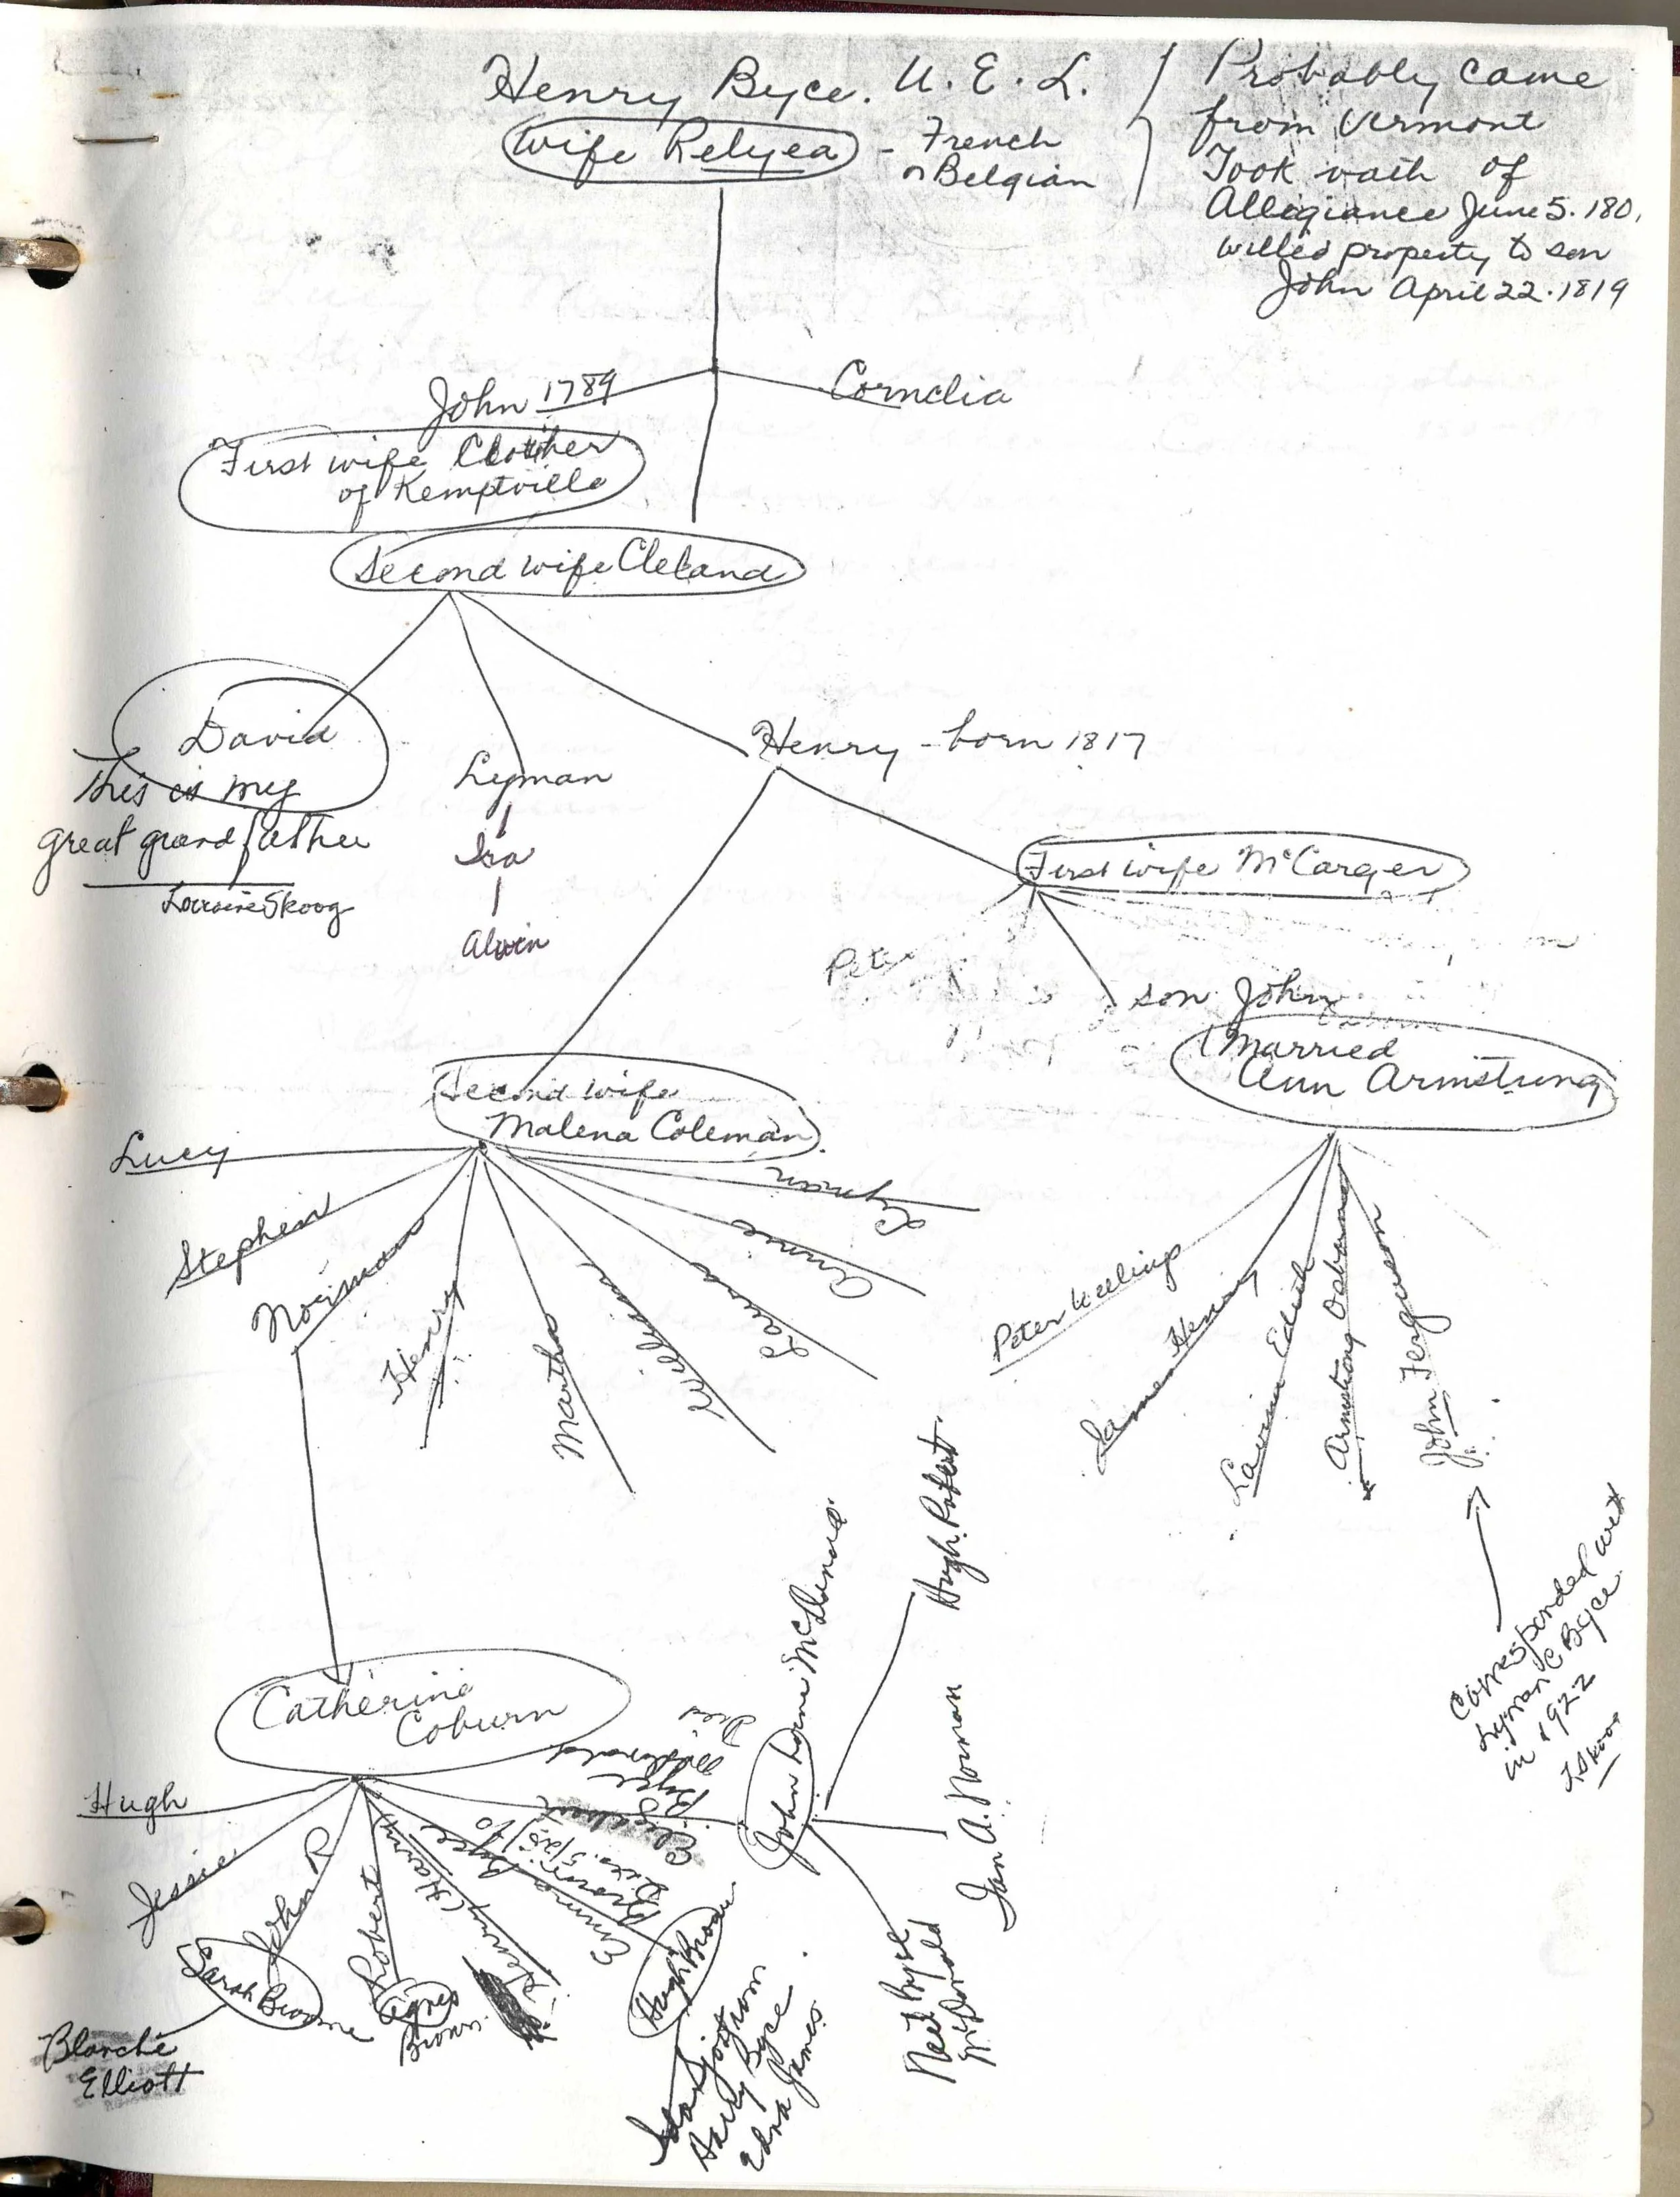 Henry Byce. U. E. L.
Wife Relyea - French
or Belgian
Probably came
from Vermont
Took oath of
Allegiance June 5. 180
willed property to son
John April 22. 1819
John 1789
Cornelia
First wife Clother
of Kemptville
Second wife Cleland
David
this is my
great grandfather
Lorraine Skoog
Lyman
Ira
Alvin
Henry - born 1817
First wife McCarger
Pete
son John
Married
Ann Armstrong
Second wife
Malena Coleman
Lucy
Stephen
Norman
Henry
Martha
William
Laura
Annie
Lyman
Peter Keeling
James Henry
Lavina Edith
Armstrong Osborne
John Ferguson
Corresponded with
Lyman C Byce
in 1922
L Skoog
Catherine
Coburn
Hugh
Jessie
John R
Sarah Browne
Blanche
Elliott
Robert
Agnes
Brown
Henry (Harry)
Emma Byce
Brown
Died 5/25/70
Hugh Brown
Harry Byce
Edna James
Elizabent
Byce
McDonald
Died
John Lorne McDonald
Hugh Robert
Ian A. Norman
Neil Byce
McDonald